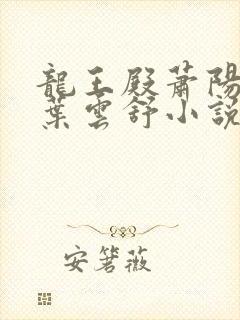 龍王殿蕭陽
葉雲舒小說
安箬薇